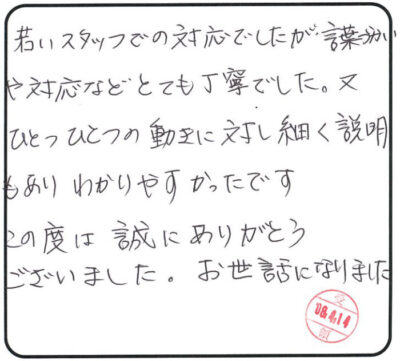 若いスタッフでの対応でしたが、言葉づかい
や対応などとても丁寧でした。又
ひとつひとつの動きに対し細く説明
もあり わかりやすかったです
この度は誠にありがとう
ございました。お世話になりました